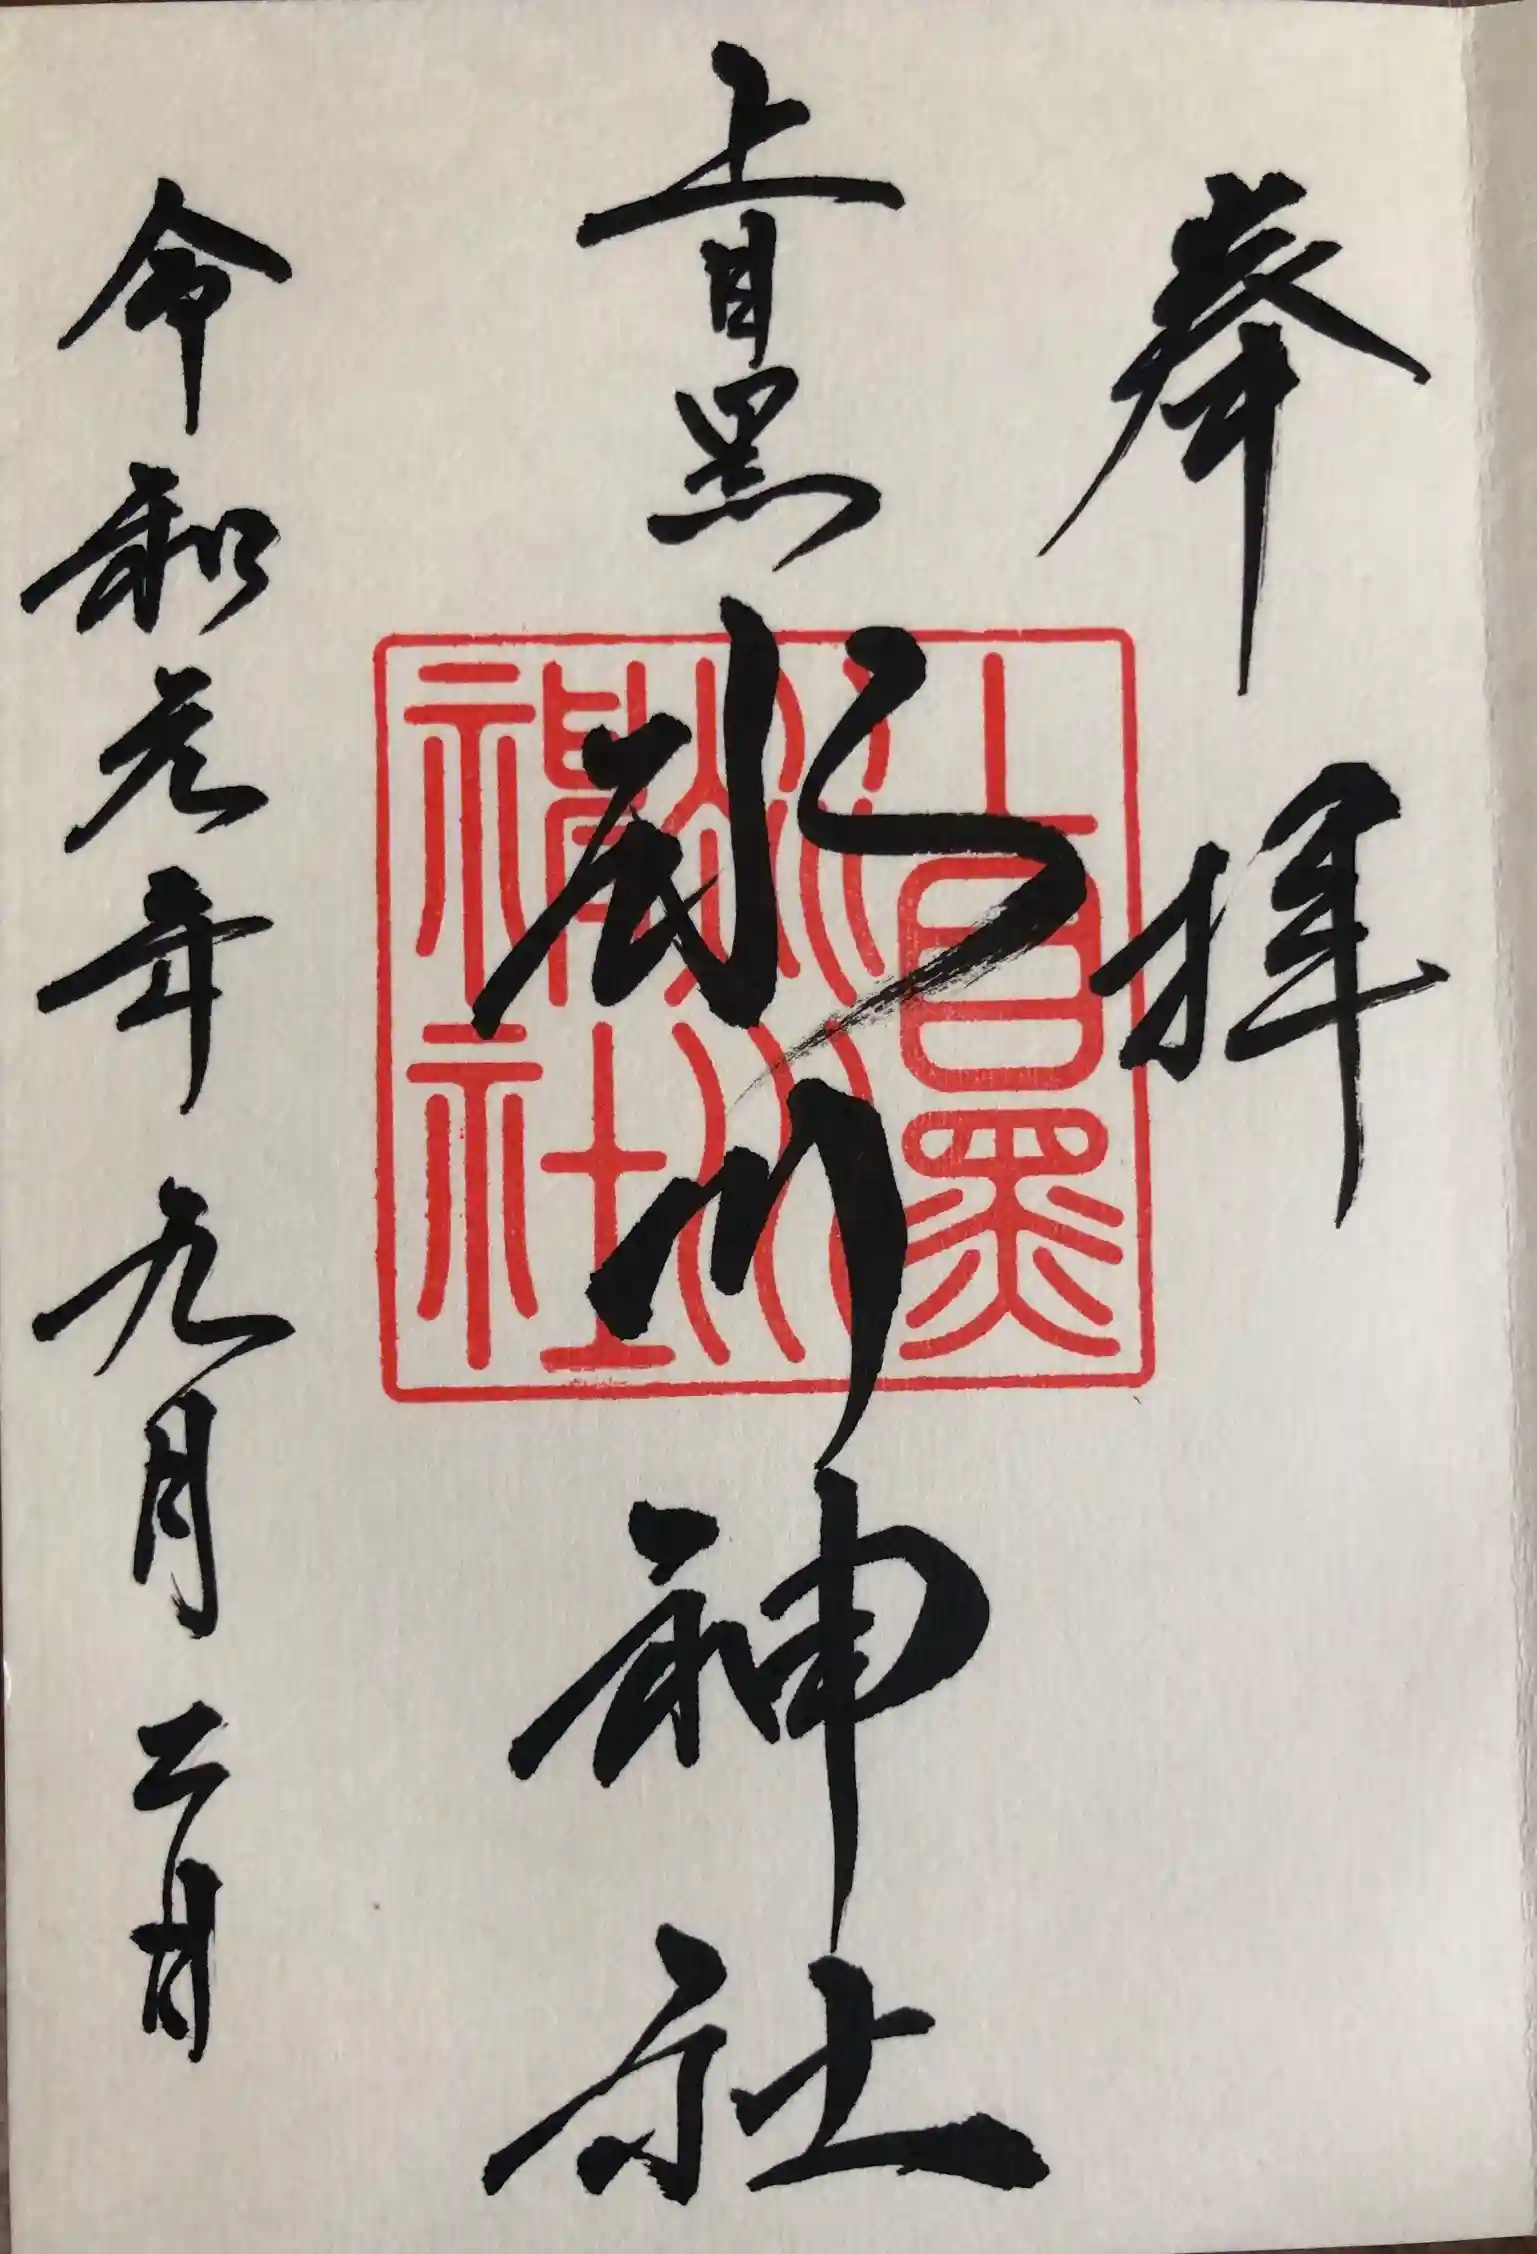 奉拝
上目黒氷川神社
令和元年九月二日
上目黒
氷川
神社